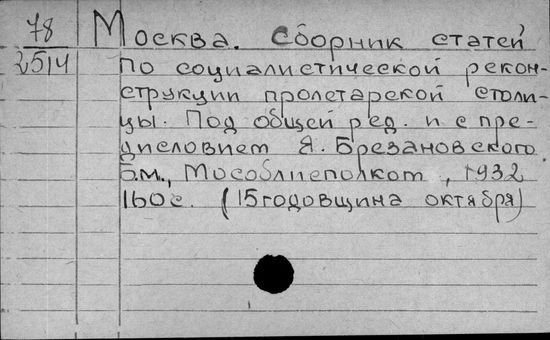 78 Москва. Сборник статей
2514 по социалистической рекон-
струкции пролетарской столи-
цы. Под общей ред. и с пре-
дисловием Я. Брезановского
б.м., Мособлисполком, 1932
160с. (15годовщина октября)